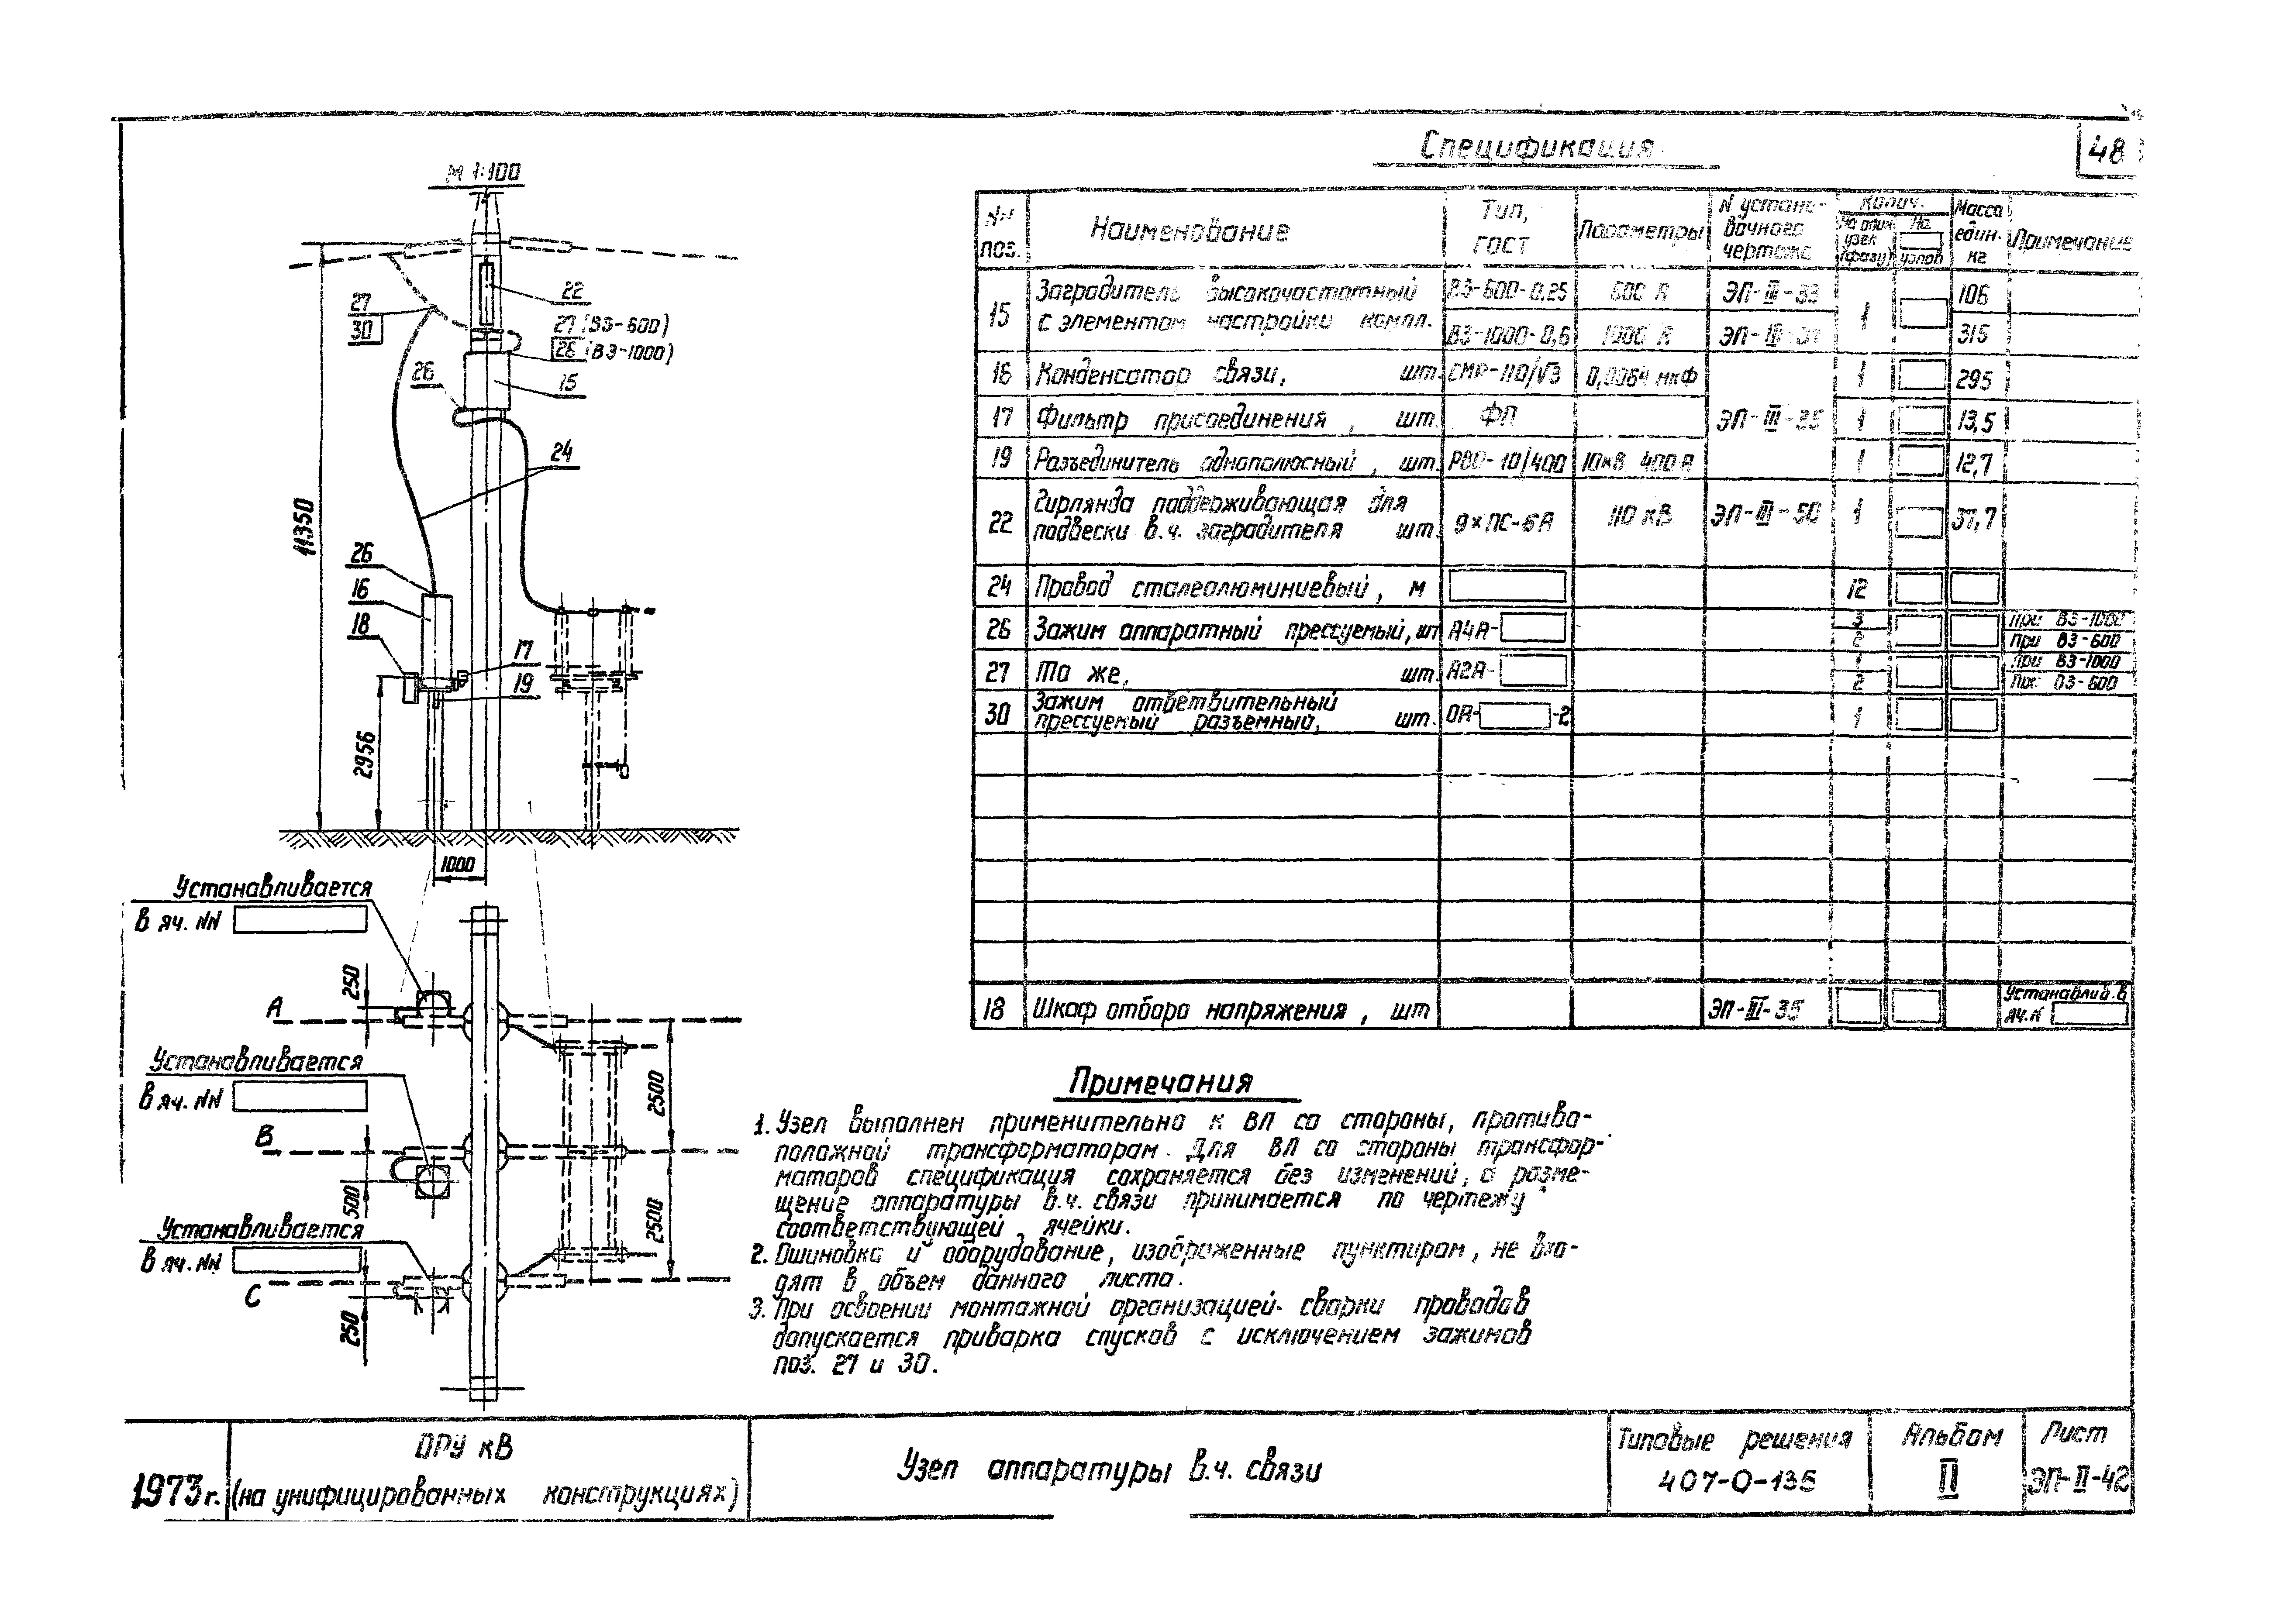 48
М 1:100
22
27 (ВЗ-600)
26 (ВЗ-1000)
27
30
26
15
24
11350
26
16
18
17
19
2956
1000
Устанавливается
в яч. NN
250
А
Устанавливается
в яч. NN
В
500
2500
2500
Устанавливается
в яч. NN
С
250
Спецификация
NN поз. Наименование Тип, ГОСТ Параметры N устано-вочного чертежа Колич. На один узел (фазу) На узлов Масса един. кг Примечание
15 Заградитель высокочастотный с элементом настройки компл. ВЗ-600-0,25 600 А ЭП-III-33 1 106
ВЗ-1000-0,6 1000 А 315
16 Конденсатор связи, шт. СМР-110/√3 0,0064 мкФ 1 295
17 Фильтр присоединения, шт. ФП ЭП-III-35 1 13,5
19 Разъединитель однополюсный, шт. РВО-10/400 10кВ 400 А 1 12,7
22 Гирлянда поддерживающая для подвески в.ч. заградителя шт. 9×ПС-6А 110 кВ ЭП-III-50 1 37,7
24 Провод сталеалюминиевый, м 12
26 Зажим аппаратный прессуемый, шт А4А- 3 При ВЗ-1000
2 При ВЗ-600
27 То же, шт. А2А- 1 При ВЗ-1000
2 При ВЗ-600
30 Зажим ответвительный прессуемый разъемный, шт. ОА- -2 1
18 Шкаф отбора напряжения, шт ЭП-III-35 Устанавлив. в яч. N
Примечания
1. Узел выполнен применительно к ВЛ со стороны, противо-
положной трансформаторам. Для ВЛ со стороны трансфор-
маторов спецификация сохраняется без изменений, а разме-
щение аппаратуры в.ч. связи принимается по чертежу
соответствующей ячейки.
2. Ошиновка и оборудование, изображенные пунктиром, не вхо-
дят в объем данного листа.
3. При освоении монтажной организацией сварки проводов
допускается приварка спусков с исключением зажимов
поз. 27 и 30.
1973 г.
ОРУ кВ
(на унифицированных конструкциях)
Узел аппаратуры в.ч. связи
Типовые решения
407-0-135
Альбом
II
Лист
ЭП-II-42